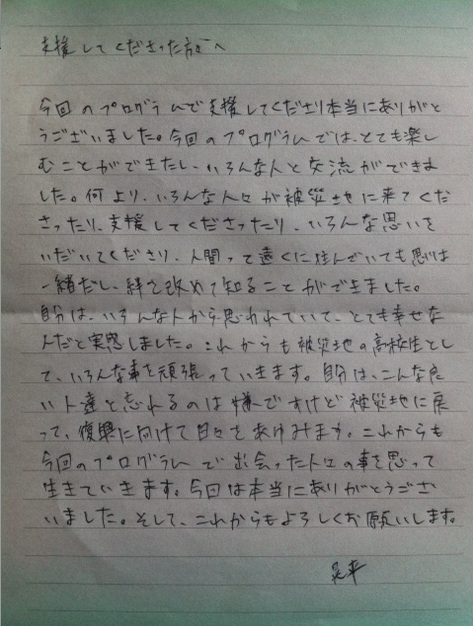 支援してくださった方々へ
今回のプログラムで支援してくださり本当にありがと
うございました。今回のプログラムでは、とても楽し
むことができたし、いろんな人と交流ができま
した。何より、いろんな人々が被災地に来てくだ
さったり、支援してくださったり、いろんな思いを
いだいてくださり、人間って遠くに住んでいても思いは
一緒だし、絆を改めて知ることができました。
自分は、いろんな人から思われていて、とても幸せな
人だと実感しました。これからも被災地の高校生とし
て、いろんな事を頑張っていきます。自分は、こんな良
い人達と忘れるのは嫌ですけど被災地に戻
って、復興に向けて日々をあゆみます。これからも
今回のプログラムで出会った人々の事を思って
生きていきます。今回は本当にありがとうござ
いました。そして、これからもよろしくお願いします。